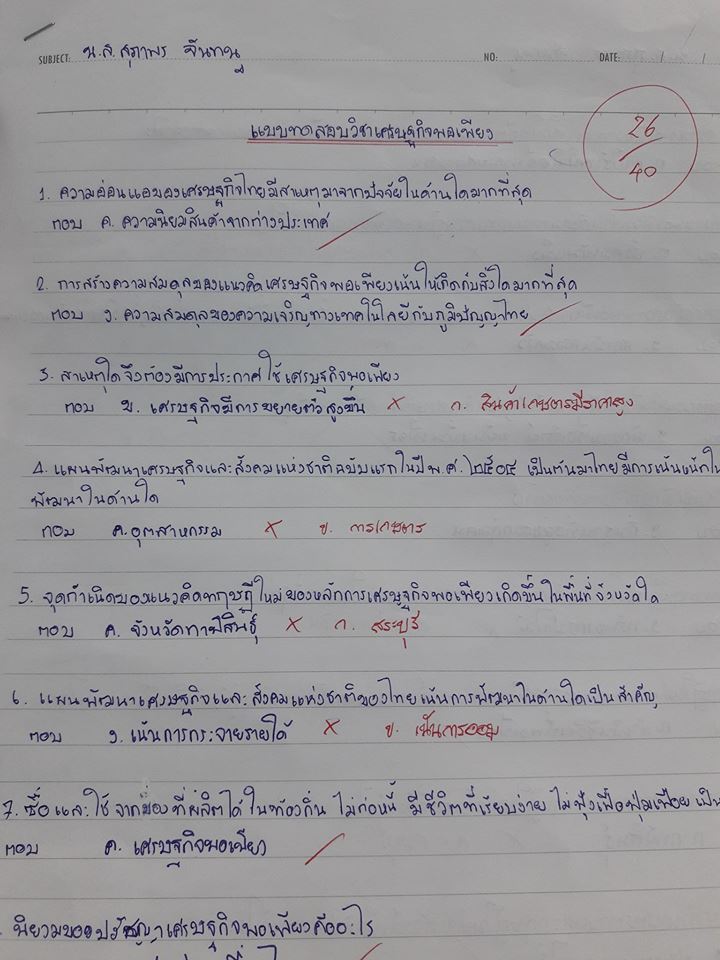 SUBJECT: น.ส.สุภาพร จันทนู NO: DATE: / /
แบบทดสอบวิชาเศรษฐกิจพอเพียง
26
40
1. ความอ่อนแอของเศรษฐกิจไทยมีสาเหตุมาจากปัจจัยในด้านใดมากที่สุด
ตอบ ค. ความนิยมสินค้าจากต่างประเทศ
2. การสร้างความสมดุลของแนวคิดเศรษฐกิจพอเพียงเน้นให้เกิดกับสิ่งใดมากที่สุด
ตอบ ง. ความสมดุลของความเจริญทางเทคโนโลยีกับภูมิปัญญาไทย
3. สาเหตุใดจึงต้องมีการประกาศใช้เศรษฐกิจพอเพียง
ตอบ ข. เศรษฐกิจมีการขยายตัวสูงขึ้น × ก. สินค้าเกษตรมีราคาสูง
4. แผนพัฒนาเศรษฐกิจและสังคมแห่งชาติฉบับแรกในปีพ.ศ.๒๕๐๔ เป็นต้นมาไทยมีการเน้นหนักใน
พัฒนาในด้านใด
ตอบ ค.อุตสาหกรรม × ข. การเกษตร
5. จุดกำเนิดของแนวคิดทฤษฎีใหม่ของหลักการเศรษฐกิจพอเพียงเกิดขึ้นในพื้นที่จังหวัดใด
ตอบ ค. จังหวัดกาฬสินธุ์ × ก. สระบุรี
6. แผนพัฒนาเศรษฐกิจและสังคมแห่งชาติของไทยเน้นการพัฒนาในด้านใดเป็นสำคัญ
ตอบ ง. เน้นการกระจายรายได้ × ข. เน้นการออม
7. ซื้อและใช้จากของที่ผลิตได้ในท้องถิ่น ไม่ก่อหนี้ มีชีวิตที่เรียบง่าย ไม่ฟุ้งเฟ้อฟุ่มเฟือย เป็น
ตอบ ค. เศรษฐกิจพอเพียง
นิยามของปรัชญาเศรษฐกิจพอเพียงคืออะไร